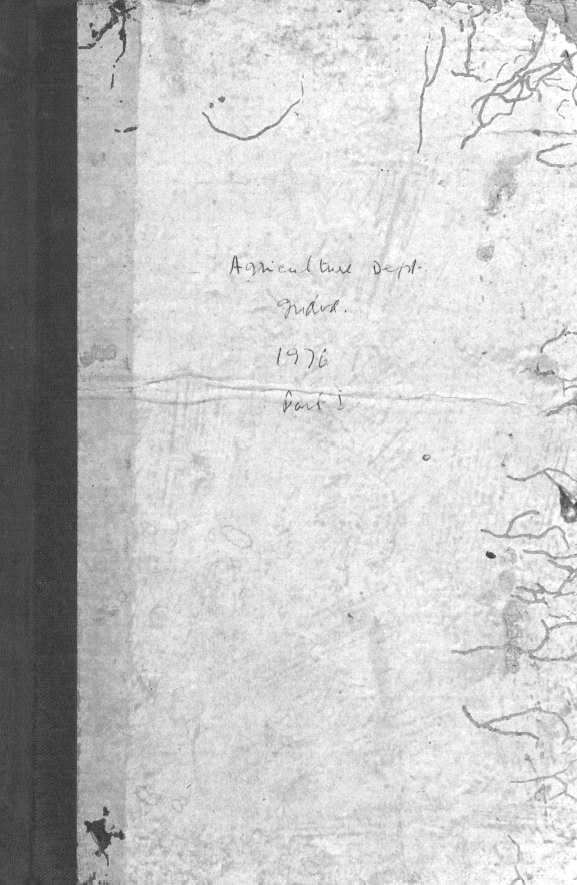 Agriculture Dept.
Index.
1976
Part I